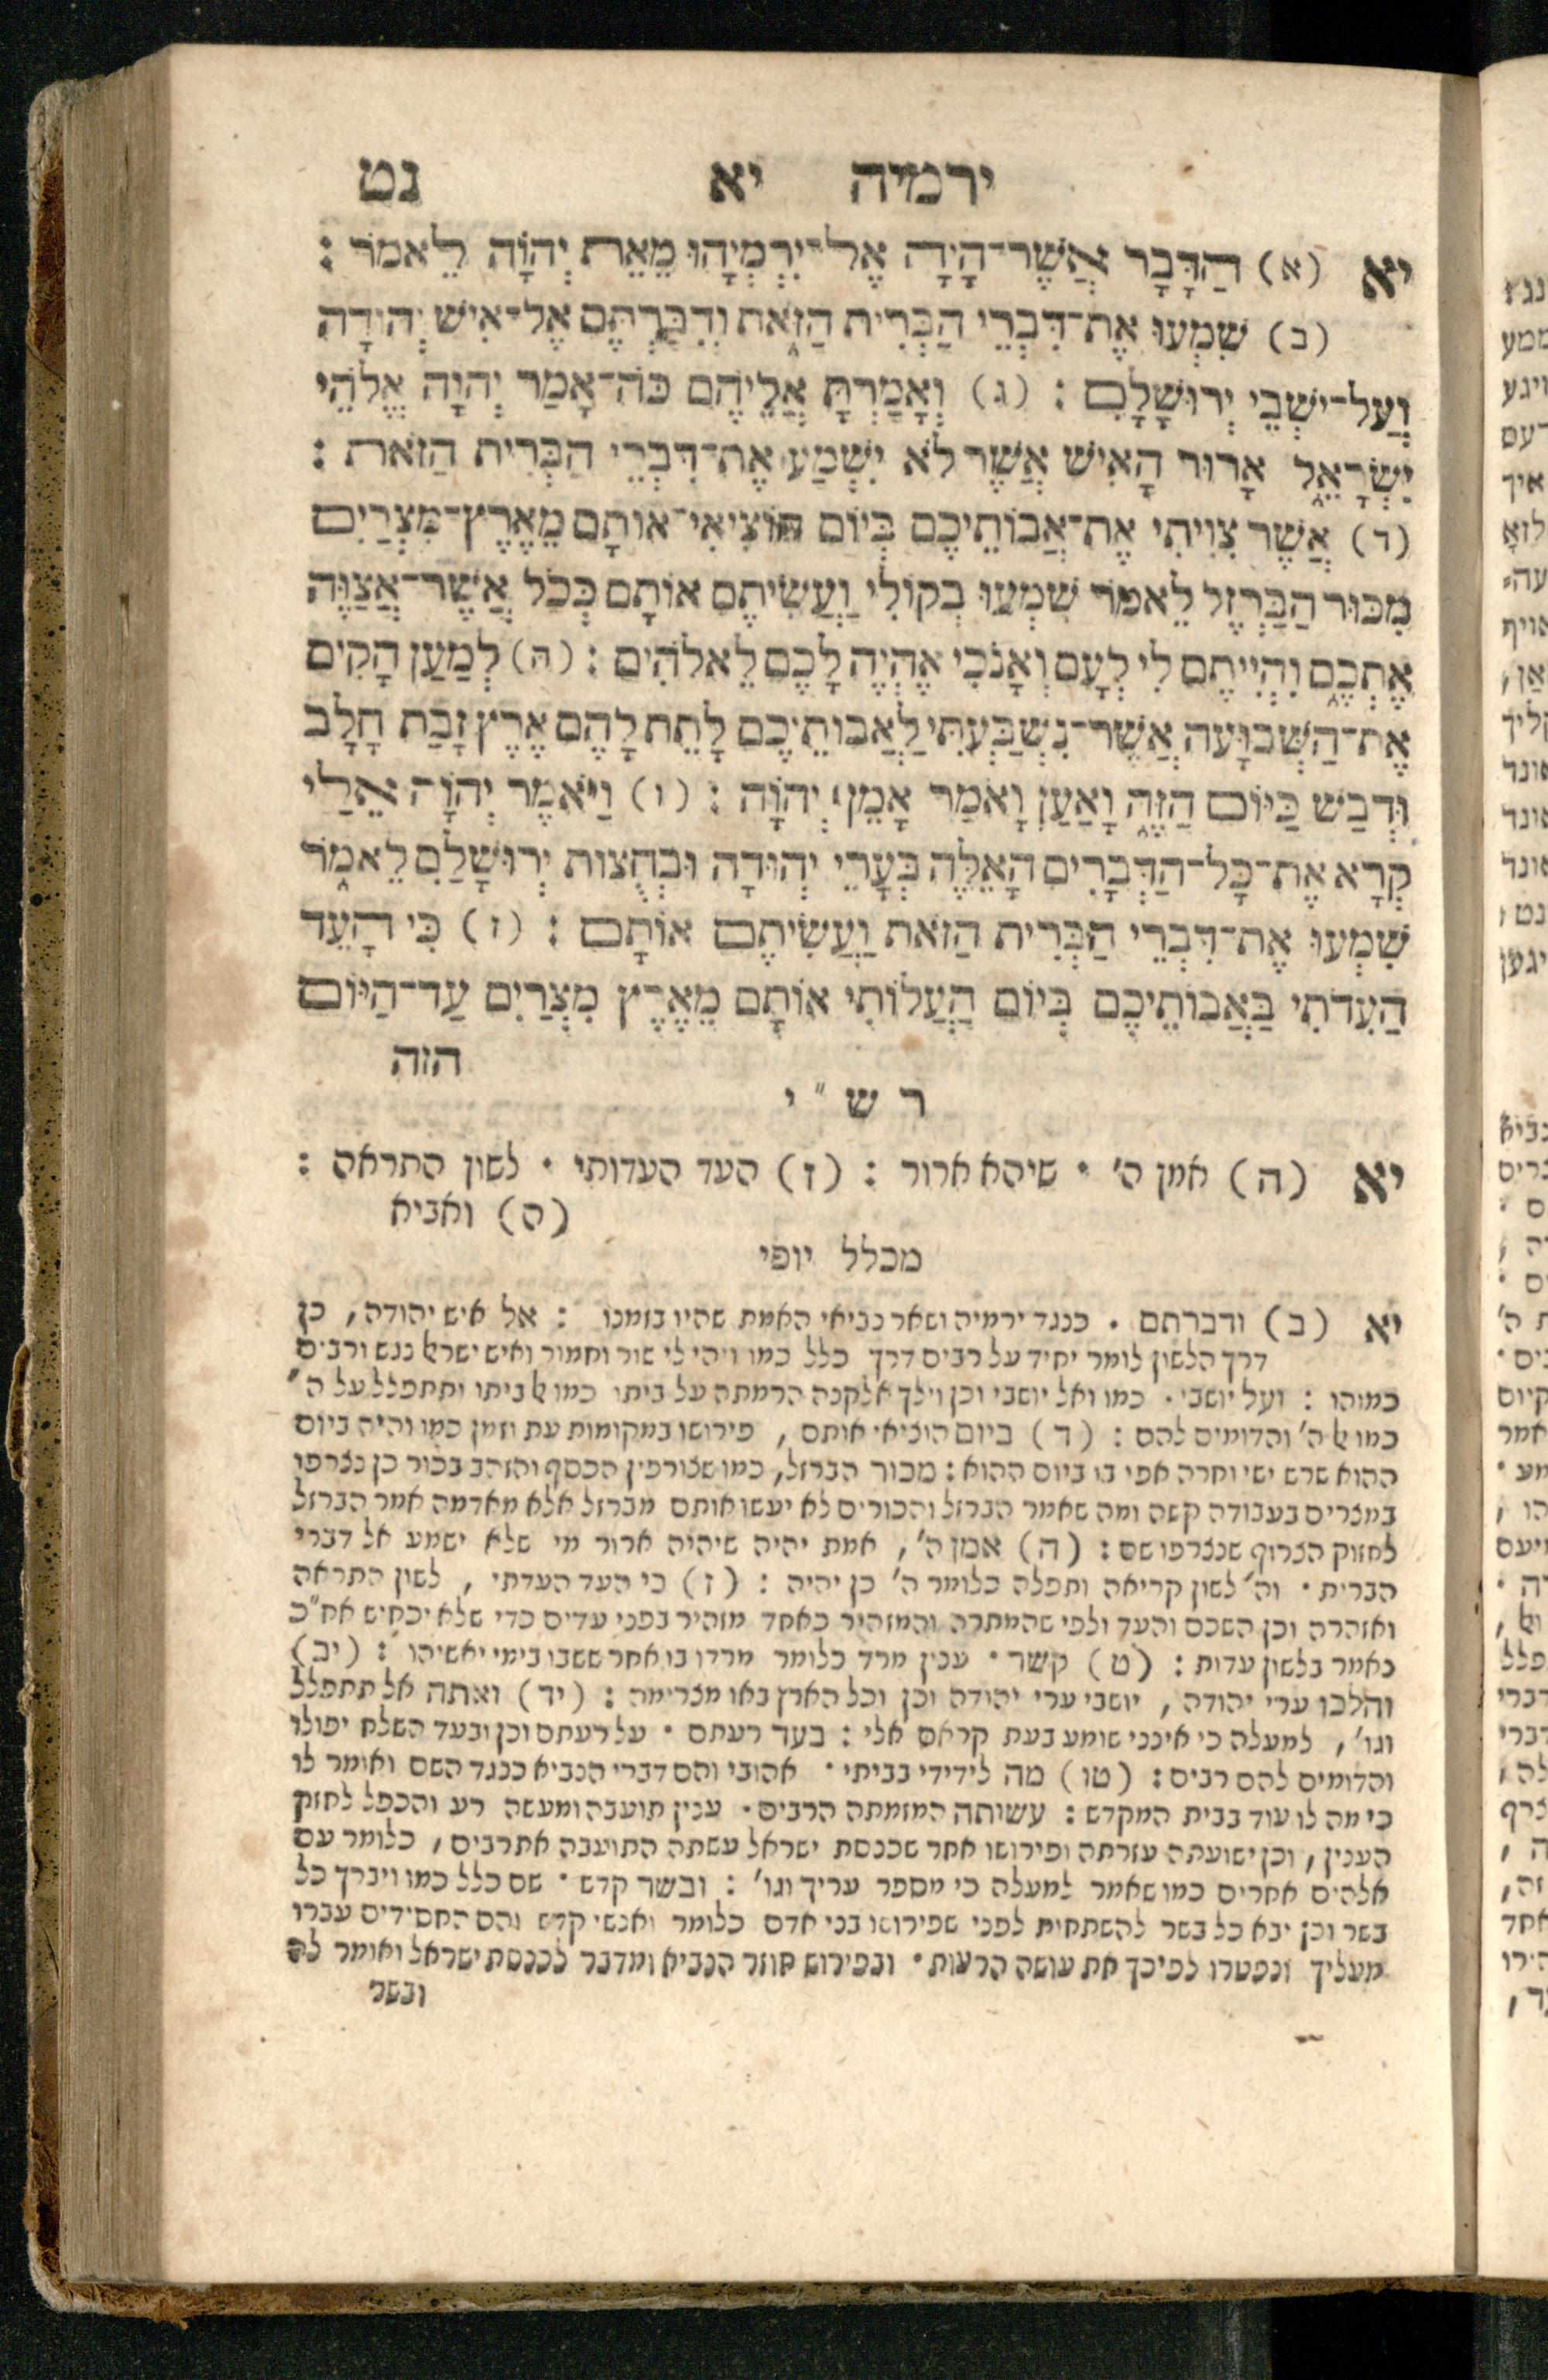 ירמיה יא נט
יא (א) הַדָּבָר אֲשֶׁר־הָיָה אֶל־יִרְמְיָהוּ מֵאֵת יְהוָה לֵאמֹר :
(ב) שִׁמְעוּ אֶת־דִּבְרֵי הַבְּרִית הַזֹּאת וְדִבַּרְתֶּם אֶל־אִישׁ יְהוּדָה
וְעַל־יֹשְׁבֵי יְרוּשָׁלָםִ : (ג) וְאָמַרְתָּ אֲלֵיהֶם כֹּה־אָמַר יְהוָה אֱלֹהֵי
יִשְׂרָאֵל אָרוּר הָאִישׁ אֲשֶׁר לֹא יִשְׁמַע אֶת־דִּבְרֵי הַבְּרִית הַזֹּאת :
(ד) אֲשֶׁר צִוִּיתִי אֶת־אֲבוֹתֵיכֶם בְּיוֹם הוֹצִיאִי־אוֹתָם מֵאֶרֶץ־מִצְרַיִם
מִכּוּר הַבַּרְזֶל לֵאמֹר שִׁמְעוּ בְקוֹלִי וַעֲשִׂיתֶם אוֹתָם כְּכֹל אֲשֶׁר־אֲצַוֶּה
אֶתְכֶם וִהְיִיתֶם לִי לְעָם וְאָנֹכִי אֶהְיֶה לָכֶם לֵאלֹהִים : (ה) לְמַעַן הָקִים
אֶת־הַשְּׁבוּעָה אֲשֶׁר־נִשְׁבַּעְתִּי לַאֲבוֹתֵיכֶם לָתֵת לָהֶם אֶרֶץ זָבַת חָלָב
וּדְבַשׁ כַּיּוֹם הַזֶּה וָאַעַן וָאֹמַר אָמֵן׀ יְהוָה : (ו) וַיֹּאמֶר יְהוָה אֵלַי
קְרָא אֶת־כָּל־הַדְּבָרִים הָאֵלֶּה בְּעָרֵי יְהוּדָה וּבְחֻצוֹת יְרוּשָׁלִַם לֵאמֹר
שִׁמְעוּ אֶת־דִּבְרֵי הַבְּרִית הַזֹּאת וַעֲשִׂיתֶם אוֹתָם : (ז) כִּי הָעֵד
הַעִדֹתִי בַּאֲבוֹתֵיכֶם בְּיוֹם הַעֲלוֹתִי אוֹתָם מֵאֶרֶץ מִצְרַיִם עַד־הַיּוֹם
הזה
ר ש " י
יא (ה) אמן ה' · שיהא ארור : (ז) העד העדותי · לשון התראה :
(ח) ואביא
מכלל יופי
יא (ב) ודברתם · כנגד ירמיה ושאר נביאי האמת שהיו בזמנו : אל איש יהודה, כן
דרך הלשון לומר יחיד על רבים דרך כלל כמו ויהי לי שור וחמור ואיש ישראל נגש ורבים
כמוהו : ועל יושבי · כמו ואל יושבי וכן וילך אלקנה הרמתה על ביתו כמו אל ביתו ותתפלל על ה'
כמו אל ה' והדומים להם : (ד) ביום הוציאי אותם , פירושו במקומות עת וזמן כמו והיה ביום
ההוא שרש ישי וחרה אפי בו ביום ההוא : מכור הברזל, כמו שצורפין הכסף והזהב בכור כן נצרפו
במצרים בעבודה קשה ומה שאמר הברזל והכורים לא יעשו אותם מברזל אלא מאדמה אמר הברזל
לחזוק הצרוף שנצרפו שם : (ה) אמן ה', אמת יהיה שיהיה ארור מי שלא ישמע אל דברי
הברית · וה' לשון קריאה ותפלה כלומר ה' כן יהיה : (ז) כי העד העדתי , לשון התראה
ואזהרה וכן השכם והעד ולפי שהמתרה והמזהיר כאחד מזהיר בפני עדים כדי שלא יכחיש אח"כ
נאמר בלשון עדות : (ט) קשר · ענין מרד כלומר מרדו בו אחר ששבו בימי יאשיהו : (יב)
והלכו ערי יהודה , יושבי ערי יהודה וכן וכל הארץ באו מצרימה : (יד) ואתה אל תתפלל
וגו', למעלה כי אינני שומע בעת קראם אלי : בעד רעתם · על רעתם וכן ובעד השלח יפולו
והדומים להם רבים : (טו) מה לידידי בביתי · אהובי והם דברי הנביא כנגד השם ואומר לו
כי מה לו עוד בבית המקדש : עשותה המזמתה הרבים · ענין תועבה ומעשה רע והכפל לחזק
הענין, וכן ישועתה עזרתה ופירושו אחר שכנסת ישראל עשתה התועבה את רבים, כלומר עם
אלהים אחרים כמו שאמר למעלה כי מספר עריך וגו' : ובשר קדש · שם כלל כמו ויברך כל
בשר וכן יבא כל בשר להשתחות לפני שפירושו בני אדם כלומר ואנשי קדש והם החסידים עברו
מעליך ונפטרו לפיכך את עושה הרעות · ובפירוש חוזר הנביא ומדבר לכנסת ישראל ואומר לה
ובשר